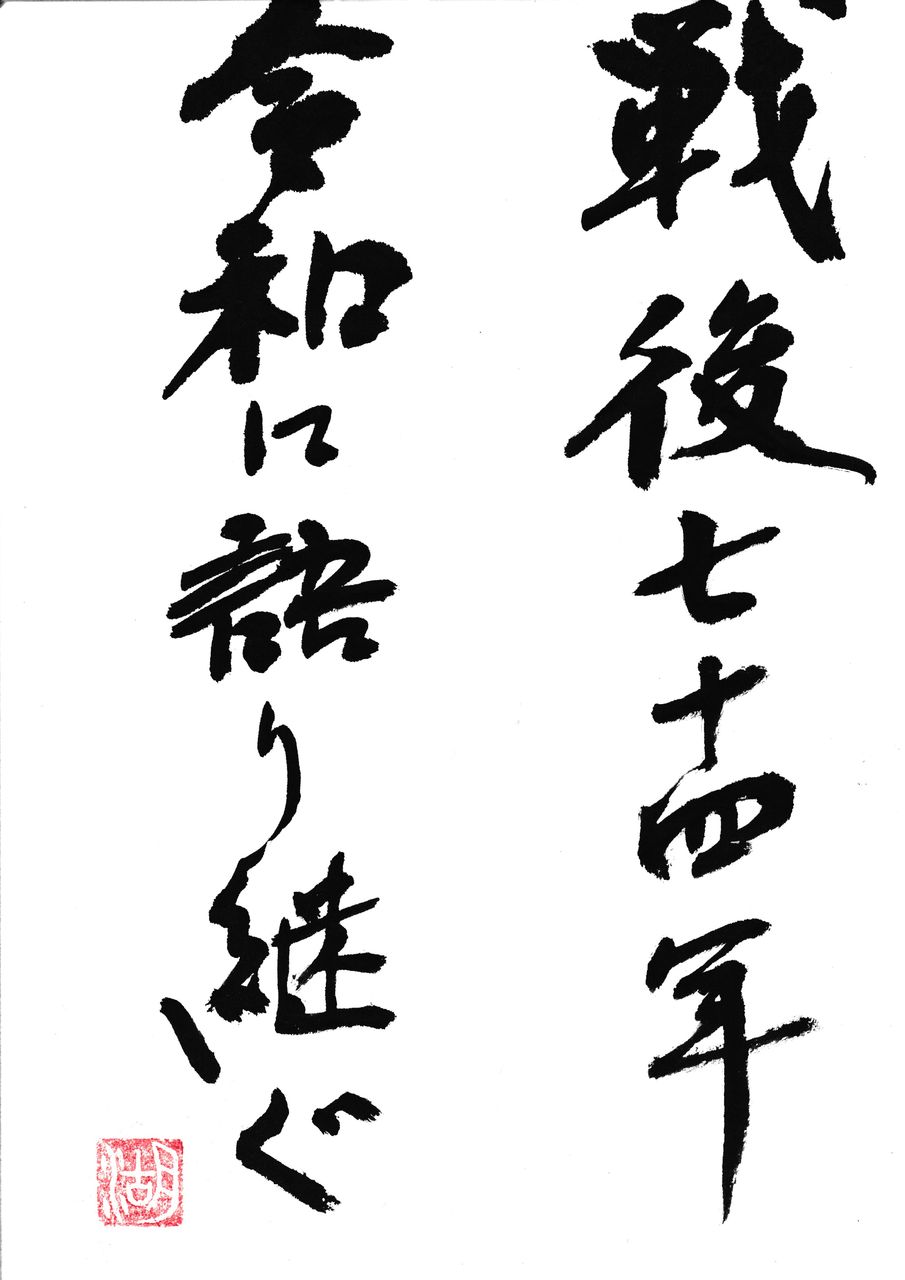 戦後七十四年
令和に語り継ぐ
湖